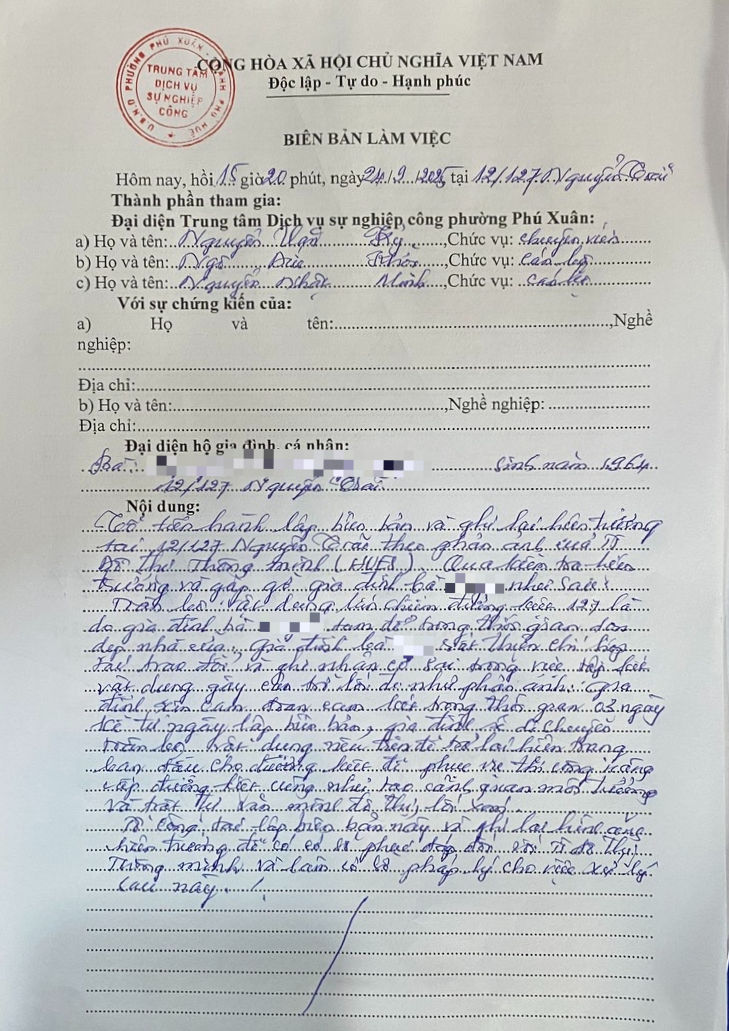 U.B.N.D PHƯỜNG PHÚ XUÂN - THÀNH PHỐ HUẾ
TRUNG TÂM
DỊCH VỤ
SỰ NGHIỆP
CÔNG
CỘNG HÒA XÃ HỘI CHỦ NGHĨA VIỆT NAM
Độc lập - Tự do - Hạnh phúc
BIÊN BẢN LÀM VIỆC
Hôm nay, hồi 15 giờ 20 phút, ngày 24/9/2025 tại 12/127 Nguyễn Trãi
Thành phần tham gia:
Đại diện Trung tâm Dịch vụ sự nghiệp công phường Phú Xuân:
a) Họ và tên: Nguyễn Kỳ, Chức vụ: chuyên viên
b) Họ và tên: Ngô Đức, Chức vụ: cán bộ
c) Họ và tên: Nguyễn Nhật Minh, Chức vụ: cán bộ
Với sự chứng kiến của:
a) Họ và tên:, Nghề
nghiệp:
Địa chỉ:
b) Họ và tên:, Nghề nghiệp:
Địa chỉ:
Đại diện hộ gia đình, cá nhân:
Bà: sinh năm 1964
12/127 Nguyễn Trãi
Nội dung:
Tổ tiến hành lập biên bản và ghi lại hiện trường
tại 12/127 Nguyễn Trãi theo phản ánh của TT
Đô thị Thông minh (HUES). Qua kiểm tra hiện
trường và gặp gỡ gia đình bà như sau:
vật dụng lấn chiếm đường kiệt 127 là
do gia đình bà tạm để trong thời gian dọn
dẹp nhà cửa, gia đình bà thiện chí hợp
tác trao đổi và ghi nhận có sai trong việc tập kết
vật dụng gây cản trở lối đi như phản ánh. Gia
đình xin cam đoan cam kết trong thời gian 03 ngày
kể từ ngày lập biên bản, gia đình sẽ di chuyển
vật dụng nêu trên để trả lại hiện trạng
ban đầu cho đường kiệt để phục vụ thi công nâng
cấp đường kiệt cũng như tạo cảnh quan môi trường
và trật tự văn minh đô thị lối xóm.
Tổ công tác lập biên bản này và ghi lại hình ảnh
hiện trường để có cơ sở phúc đáp đến với TT đô thị
Thông minh và làm cơ sở pháp lý cho việc xử lý
sau này.!